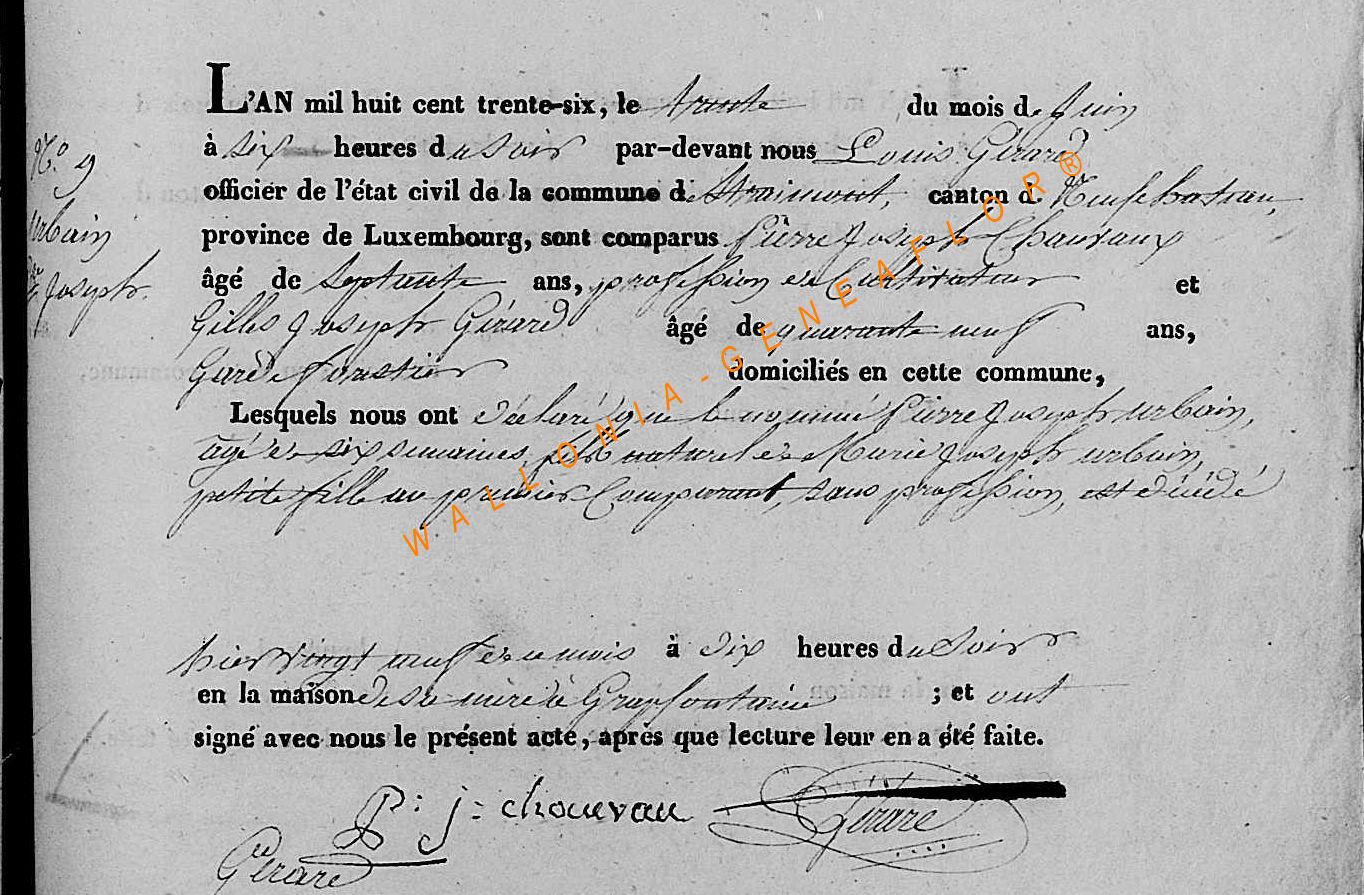 L'AN mil huit cent trente-six, le trente du mois de Juin
à six heures du Soir par-devant nous Louis Gérard
officier de l'état civil de la commune de Straimont, canton de Neufchateau,
province de Luxembourg, sont comparus Pierre Joseph Chauvaux
âgé de Septante ans, profession de Cultivateur et
Gilles Joseph Gérard âgé de quarante neuf ans,
Garde forestier domiciliés en cette commune,
Lesquels nous ont déclaré que le nommé Pierre Joseph urbain,
agé de six semaines, fils naturel de Marie Joseph urbain,
petite fille au premier Comparant, sans profession, est décédé
hier vingt neuf de ce mois à dix heures du Soir
en la maison de sa mère à Grapfontaine ; et ont
signé avec nous le présent acte, après que lecture leur en a été faite.
P: j= chauvau
Gérard
Gérard
N.o 9
urbain
Joseph.
WALLONIA-GENEAFLOR®